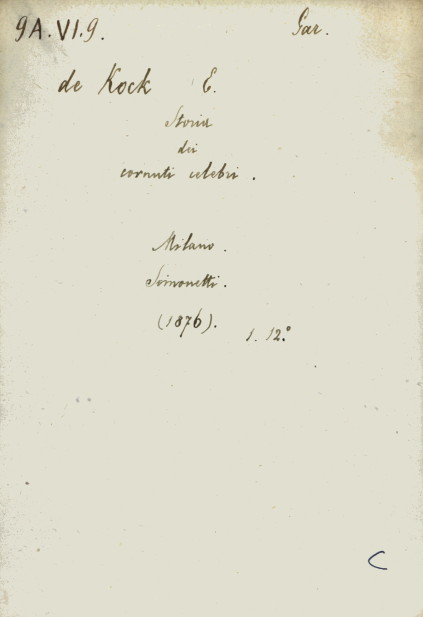 9A.VI.9. Gar.
de Kock E.
Storia
dei
cornuti celebri.
Milano.
Simonetti.
(1876).
1. 12.°
C